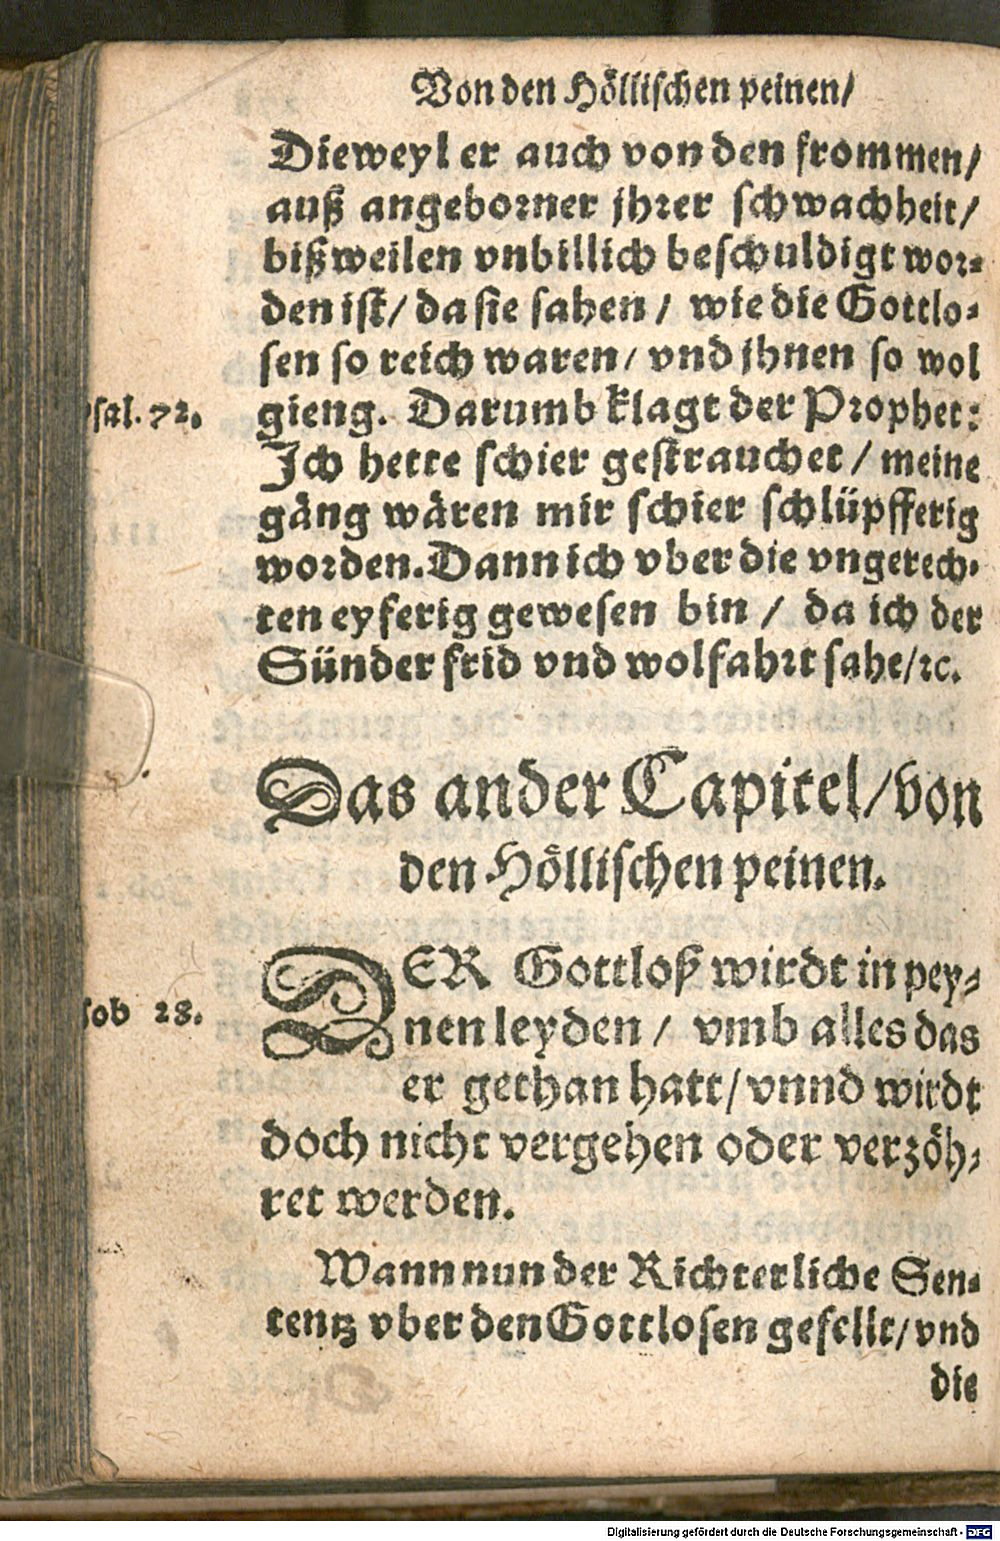 Von den Höllischen peinen/
Dieweyl er auch von den frommen/
auß angeborner jhrer schwachheit/
bißweilen vnbillich beschuldigt wor-
den ist/ da sie sahen/ wie die Gottlo-
sen so reich waren/ vnd jhnen so wol
sal. 72. gieng. Darumb klagt der Prophet:
Ich hette schier gestrauchet/ meine
gäng wären mir schier schlüpfferig
worden. Dann ich vber die vngerech-
ten eyferig gewesen bin/ da ich der
Sünder frid vnd wolfahrt sahe/ꝛc.
Das ander Capitel/ von
den Höllischen peinen.
DER Gottloß wirdt in pey-
Job 28. nen leyden/ vmb alles das
er gethan hatt/ vnnd wirdt
doch nicht vergehen oder verzöh-
ret werden.
Wann nun der Richterliche Sen-
tentz vber den Gottlosen gefellt/ vnd
die
Digitalisierung gefördert durch die Deutsche Forschungsgemeinschaft - DFG